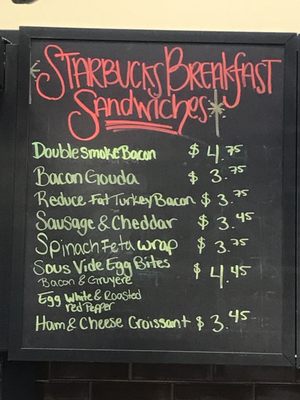 Starbucks Breakfast
Sandwiches
Double Smoke Bacon $ 4.75
Bacon Gouda $ 3.75
Reduce Fat Turkey Bacon $ 3.75
Sausage & Cheddar $ 3.45
Spinach Feta Wrap $ 3.75
Sous Vide Egg Bites $ 4.45
Bacon & Gruyere
Egg White & Roasted
red Pepper
Ham & Cheese Croissant $ 3.45